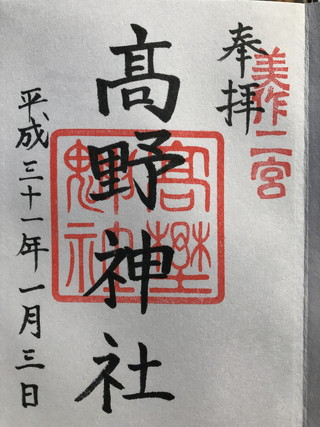 美作二宮
奉拝
髙野神社
平成三十一年一月三日